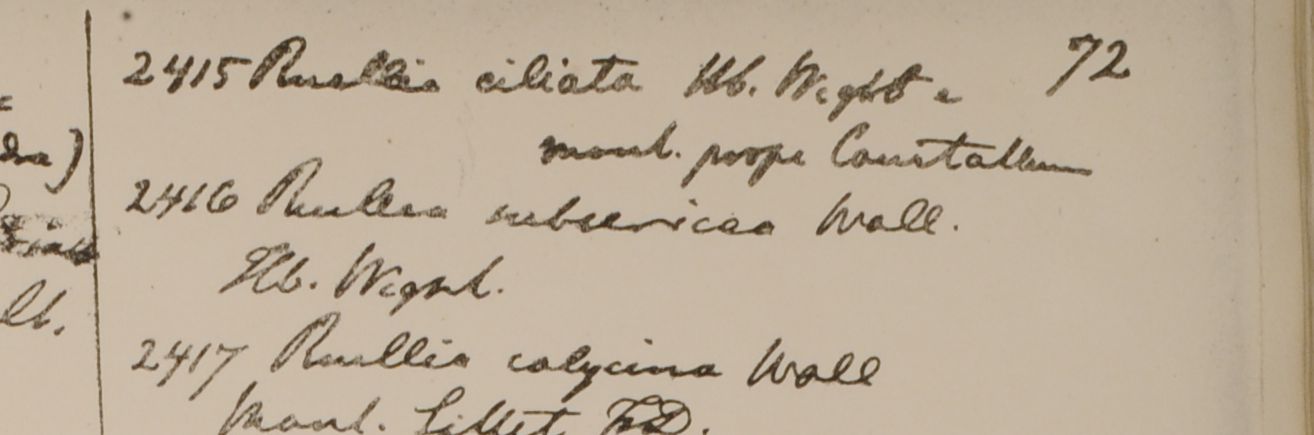 72
2415 Ruellia ciliata Hb. Wight e
mont. prope Courtallum
2416 Ruellia subsericea Wall.
Hb. Wight.
2417 Ruellia calycina Wall
Mont. Sillet F.D.